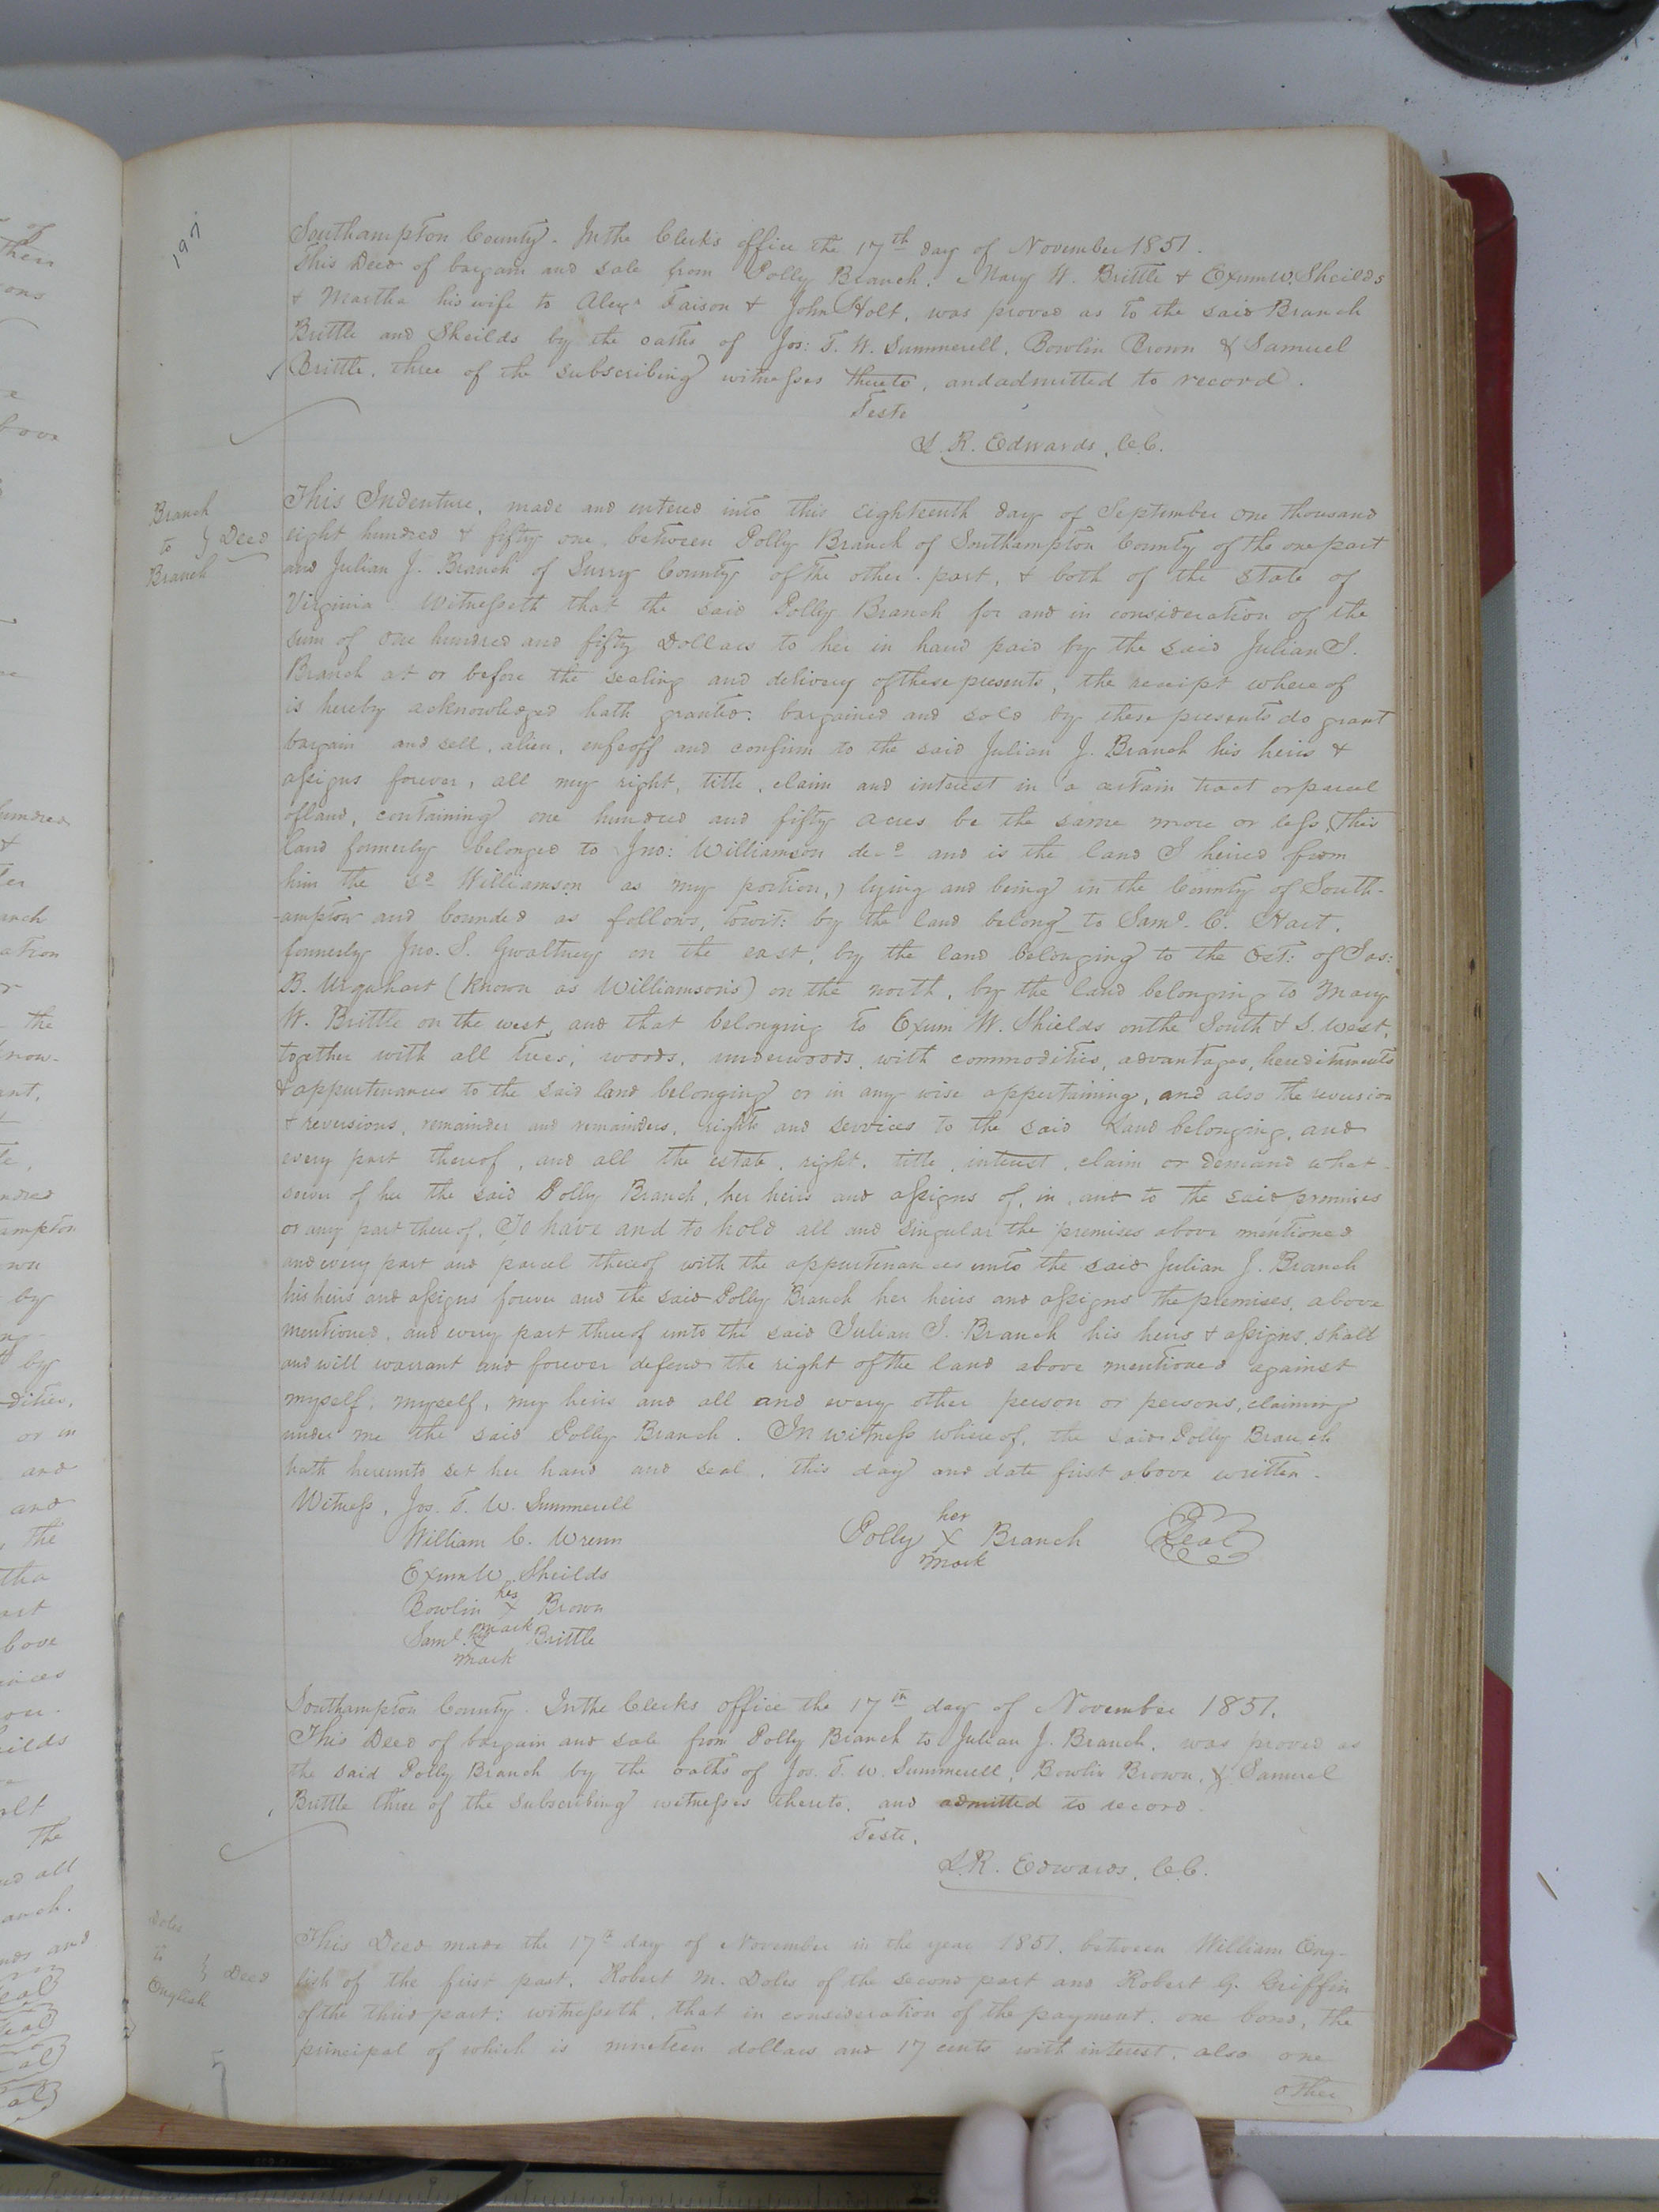 197
Southampton County. In the Clerks office the 17th day of November 1851.
This Deed of bargain and sale from Polly Branch, Mary W. Brittle & Exum W. Sheilds
& Martha his wife to Alexr Faison & John Holt, was proved as to the said Branch
Brittle and Sheilds by the oaths of Jos: T. W. Summerell, Bowlin Brown & Samuel
Brittle, three of the subscribing witnesses thereto, and admitted to record.
Teste
L. R. Edwards, C.C.
Branch
to } Deed
Branch
This Indenture, made and entered into this eighteenth day of September one thousand
eight hundred & fifty one, between Polly Branch of Southampton County of the one part
and Julian J. Branch of Surry County of the other part, & both of the State of
Virginia Witnesseth that the said Polly Branch for and in consideration of the
sum of one hundred and fifty Dollars to her in hand paid by the said Julian J.
Branch at or before the sealing and delivery of these presents, the receipt where of
is hereby acknowledged hath granted: bargained and sold by these presents do grant
bargain and sell, alien, enfeoff and confirm to the said Julian J. Branch his heirs &
assigns forever, all my right, title, claim and interest in a certain tract or parcel
of land, containing one hundred and fifty acres be the same more or less, (This
land formerly belonged to Jno: Williamson decd and is the land I heired from
him the sd Williamson as my portion,) lying and being in the County of South-
-ampton and bounded as follows, towit: by the land belong_ to Saml. C. Hart,
formerly Jno. S. Gwaltney on the east, by the land belonging to the Est: of Jas:
B. Urquhart (known as Williamsons) on the north, by the land belonging to Mary
W. Brittle on the west, and that belonging to Exum W. Shields on the South & S. west,
together with all trees, woods, underwoods, with commodities, advantages, hereditaments
& appurtenances to the said land belonging or in any wise appertaining, and also the reversion
& reversions, remainder and remainders, rights and services to the said Land belonging, and
every part thereof, and all the estate, right, title, interest, claim or demand what-
soever of her the said Polly Branch, her heirs and assigns of, in, and to the said premises
or any part there of, To have and to hold all and singular the premises above mentioned
and every part and parcel thereof with the appurtenances unto the said Julian J. Branch
his heirs and assigns forever and the said Polly Branch her heirs and assigns the premises, above
mentioned, and every part thereof unto the said Julian J. Branch his heirs & assigns, shall
and will warrant and forever defend the right of the land above mentioned against
myself, myself, my heirs and all and every other person or persons, claiming
under me the said Polly Branch. In witness where of, the said Polly Branch
hath hereunto set her hand and seal, this day and date first above written.
Witness, Jos. T. W. Summerell
William C. Wrenn
Exum W. Sheilds
Bowlin his x mark Brown
Saml. his x mark Brittle
Polly her x mark Branch Seal
Southampton County. In the Clerks office the 17th day of November 1851.
This Deed of bargain and sale from Polly Branch to Julian J. Branch, was proved as
the said Polly Branch by the oaths of Jos. T. W. Summerell, Bowlin Brown, & Samuel
Brittle three of the subscribing witnesses thereto, and admitted to record.
Teste,
L. R. Edwards, C.C.
Doles
to } Deed
English
This Deed made the 17th day of November in the year 1851, between William Eng-
lish of the first part, Robert M. Doles of the second part and Robert G. Griffin
of the third part: witnesseth, that in consideration of the payment, one bond, the
principal of which is nineteen dollars and 17 cents with interest, also one
other